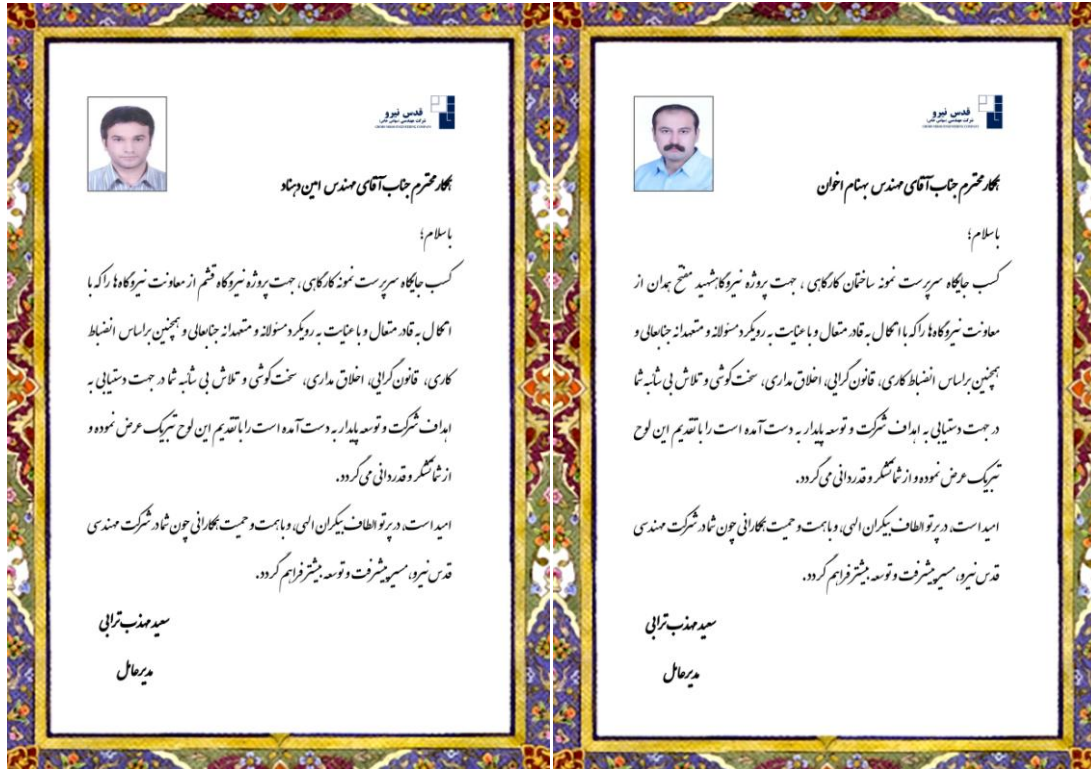 قدس نیرو
شرکت مهندسی (سهامی خاص)
همکار محترم جناب آقای مهندس بهنام اخوان
باسلام؛
کسب جایگاه سرپرست نمونه ساختمان کارگاهی ، جهت پروژه نیروگاه شهید مفتح همدان از
معاونت نیروگاه‌ها را که با اتکال به قادر متعال و با عنایت به رویکرد مسئولانه و متعهدانه جنابعالی و
همچنین براساس انضباط کاری، قانون‌گرایی، اخلاق مداری، سخت کوشی و تلاش بی شائبه شما
در جهت دستیابی به اهداف شرکت و توسعه پایدار به دست آمده است را با تقدیم این لوح
تبریک عرض نموده و از شما تشکر و قدردانی می گردد.
امید است، در پرتو الطاف بیکران الهی، و با همت و حمیت همکارانی چون شما در شرکت مهندسی
قدس نیرو، مسیر پیشرفت و توسعه بیشتر فراهم گردد.
سعید مهذب ترابی
مدیرعامل
قدس نیرو
شرکت مهندسی (سهامی خاص)
همکار محترم جناب آقای مهندس امین دهناد
باسلام؛
کسب جایگاه سرپرست نمونه کارگاهی، جهت پروژه نیروگاه قشم از معاونت نیروگاه‌ها را که با
اتکال به قادر متعال و با عنایت به رویکرد مسئولانه و متعهدانه جنابعالی و همچنین براساس انضباط
کاری، قانون‌گرایی، اخلاق مداری، سخت کوشی و تلاش بی شائبه شما در جهت دستیابی به
اهداف شرکت و توسعه پایدار به دست آمده است را با تقدیم این لوح تبریک عرض نموده و
از شما تشکر و قدردانی می گردد.
امید است، در پرتو الطاف بیکران الهی، و با همت و حمیت همکارانی چون شما در شرکت مهندسی
قدس نیرو، مسیر پیشرفت و توسعه بیشتر فراهم گردد.
سعید مهذب ترابی
مدیرعامل